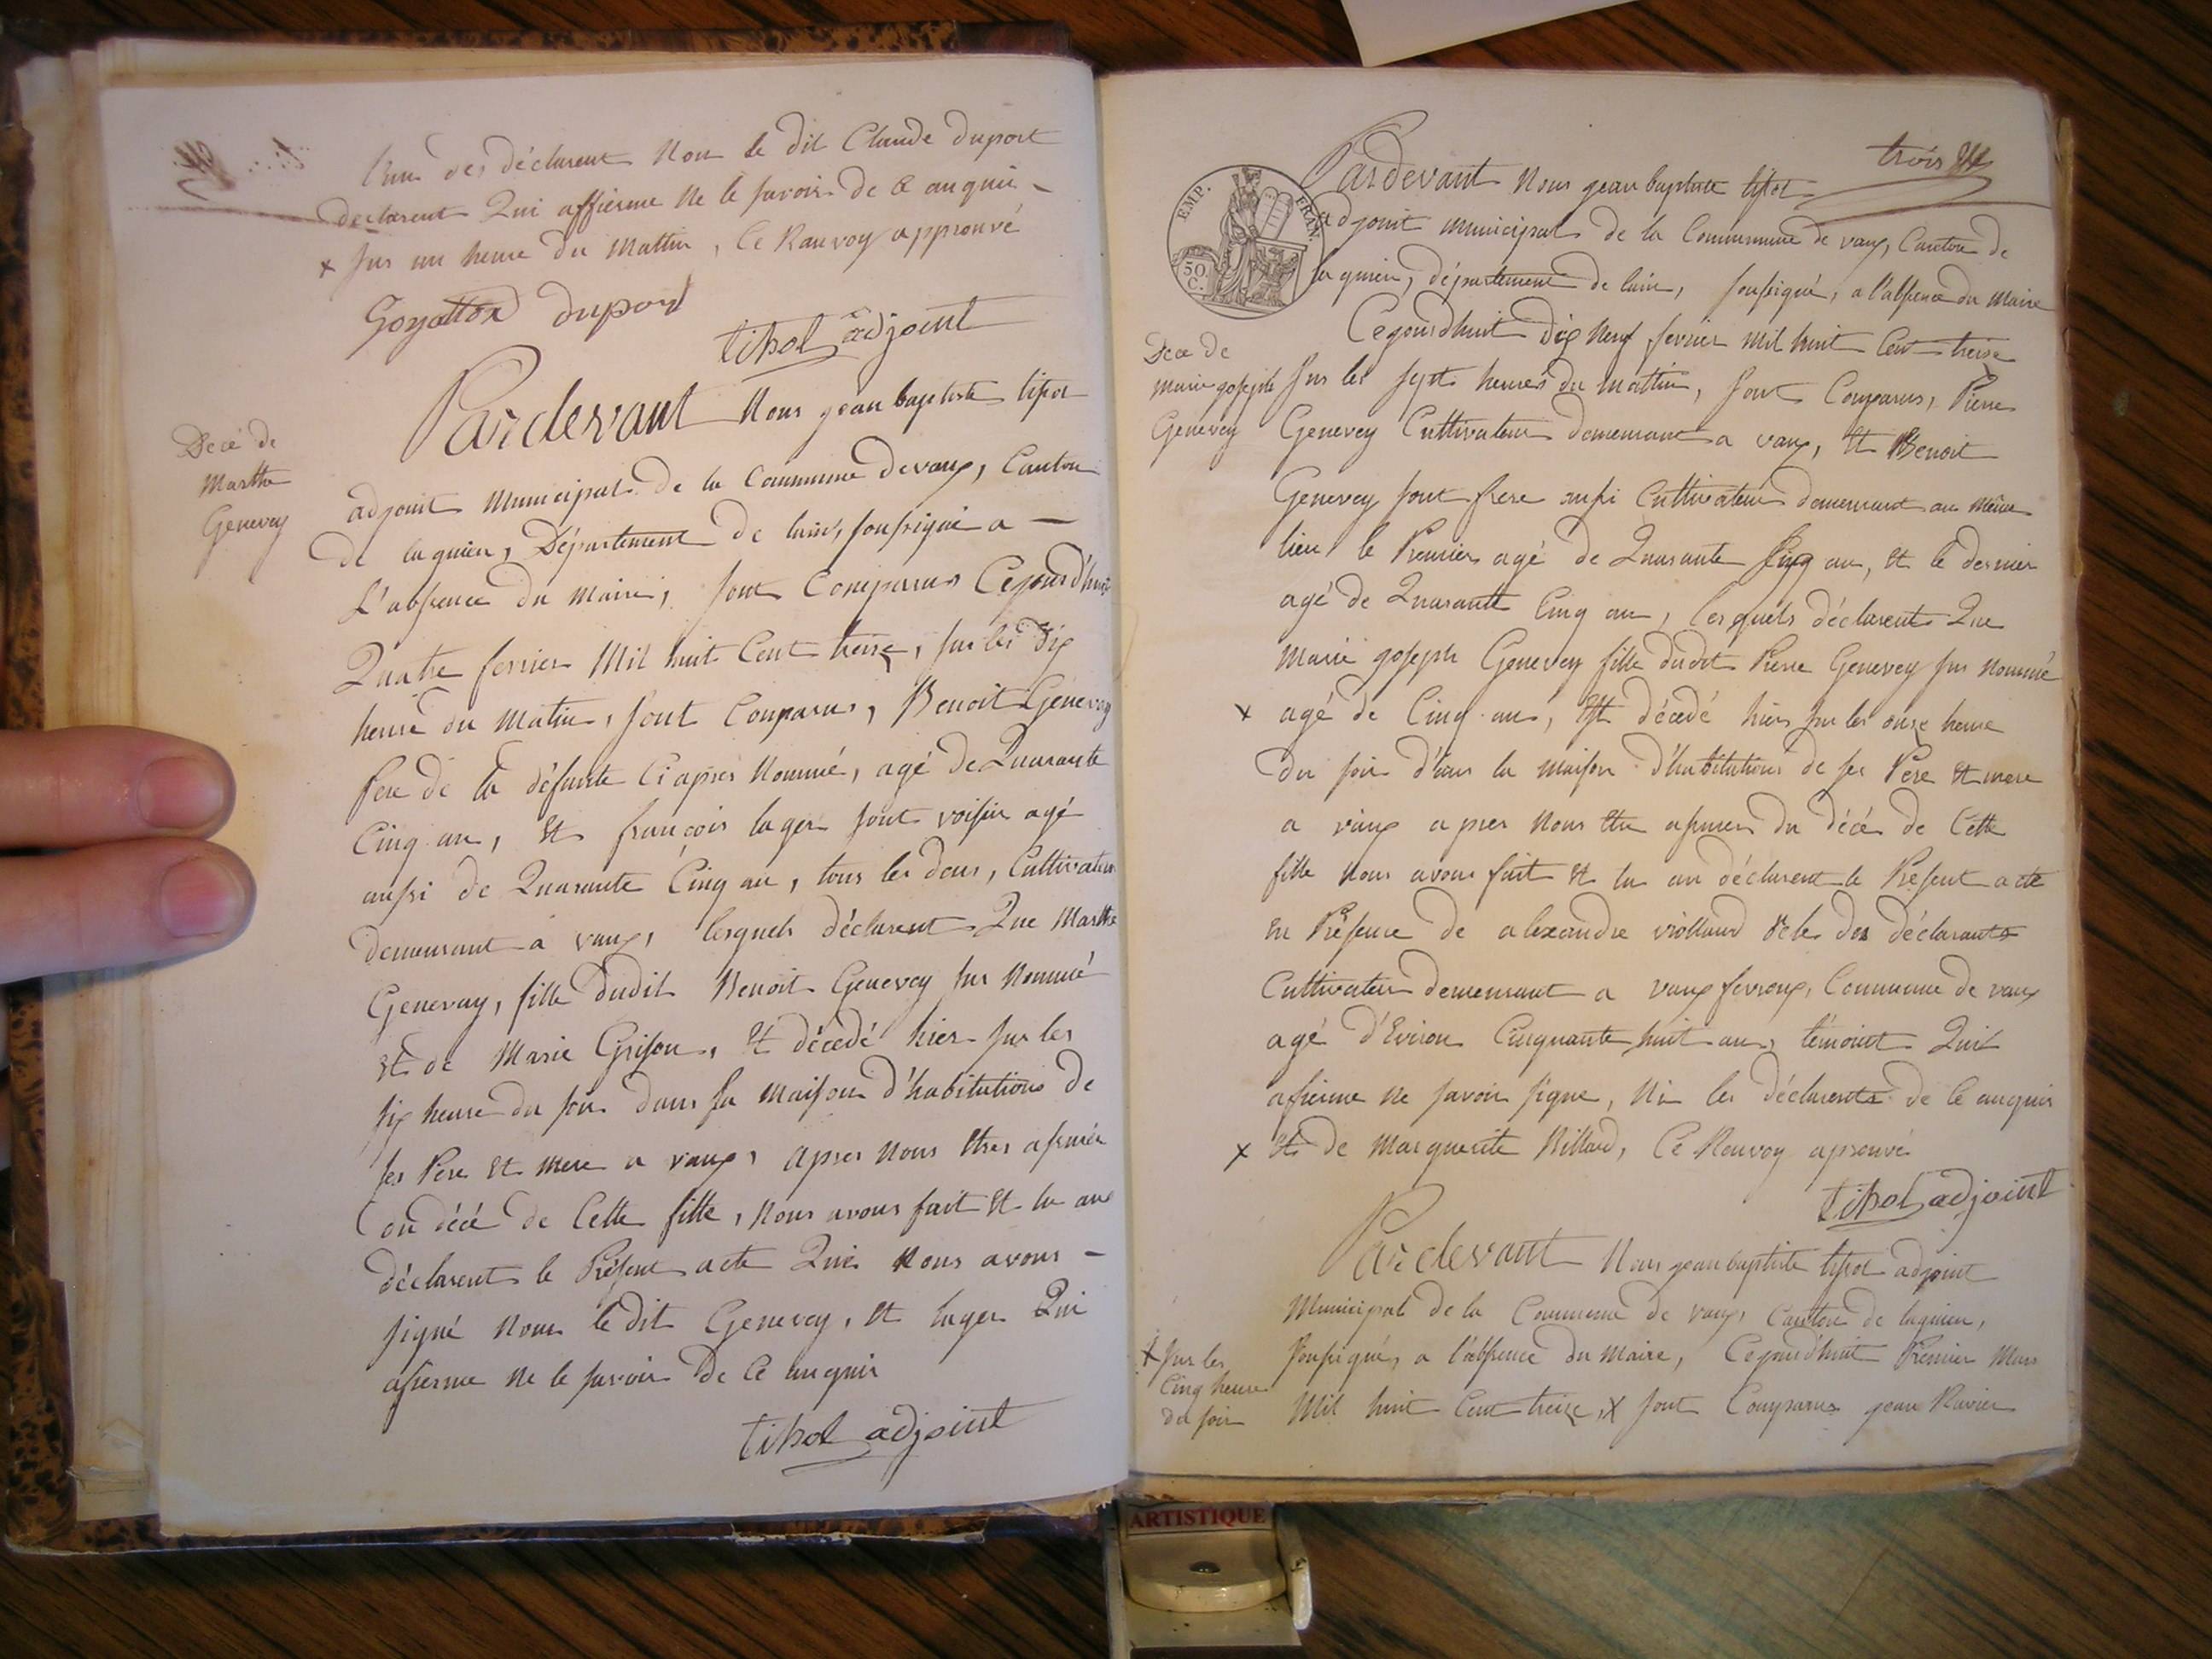 l'un des déclarent non le dit Claude duport
declarent Qui affierme ne le savoir de ce anquir -
x sur un heure du mattin, Ce Ranvoy approuvé
Goyatton duport
tihol adjoint
Decé de
Marthe
Genevey
Pardevant Nous jean baptiste tihol
adjoint Municipal de la Commune devaux, Canton
de laguieu, Département de lain, soussigné a —
L'abssence du Maire, sont Comparus Cejourd'huit
Quatre fevrier Mil huit Cent treize, sur les dix
heure du Matin, sont Comparus, Benoit Genevay
Pere de la défunte Ci apres Nommé, agé de Quarante
Cinq an, Et françois lager sont voisin agé
aussi de Quarante Cinq an, tous les deus, Cultivateur
demeurant a vaux, lesquels déclarent Que Marthe
Genevay, fille dudit Benoit Genevey sus Nommé
Et de Marie Grison, Et décedé hier sur les
six heure du soir dans sa Maison d'habitations de
ses Pere Et mere a vaux, apres Nous Etres assurée
du décé de Cette fille, Nous avons fait Et lu aux
déclarent le Présent acte Que Nous avons -
signé Non le dit Genevey, Et lager Qui
afierme Ne le savoir de Ce anquir
tihol adjoint
trois
EMP. FRAN.
50 C.
Pardevant Nous jean baptiste tihol
adjoint municipal de la Commune de vaux, Canton de
laguieu, département de lain, soussigné, a l'abssence du Maire
Cejourdhuit dix Neuf fevrier Mil huit Cent treize
Decé de
Marie joseph
Genevey
sur les sept heures du Mattin, sont Comparus, Pierre
Genevey Cultivateur demeurant a vaux, Et Benoit
Genevey sont frere aussi Cultivateur demeurant au Même
lieu le Premier agé de Quarante Cinq an, Et le dernier
agé de Quarante Cinq an, lesquels déclarent Que
Marie joseph Genevey fille dudit Pierre Genevey sus Nommé
x agé de Cinq ans, Est décedé hier sur les onze heure
du soir d'ans la maison d'habitations de ses Pere Et mere
a vaux apres Nous Etre assurer du décé de Cette
fille Nous avons fait Et lu au déclarent le Présent acte
En Présence de alexandre viollaud des déclarants
Cultivateur demeurant a vaux fevroux, Commune de vaux
agé d'Eviron Cinquante huit ans, témoint Quit
afierme ne savoir signe, Ni les déclarents de le anquir
x Et de Marguerite Billard, Ce Renvoy aprouvé
tihol adjoint
Pardevant Nous jean baptiste tihol adjoint
Municipal de la Commune de vaux, Canton de laguieu,
soussigné, a l'abssence du Maire, Cejourd'huit Premier Mars
x sur les
Cinq heure
du soir
Mil huit Cent treize, x sont Comparus jean Ravier
ARTISTIQUE